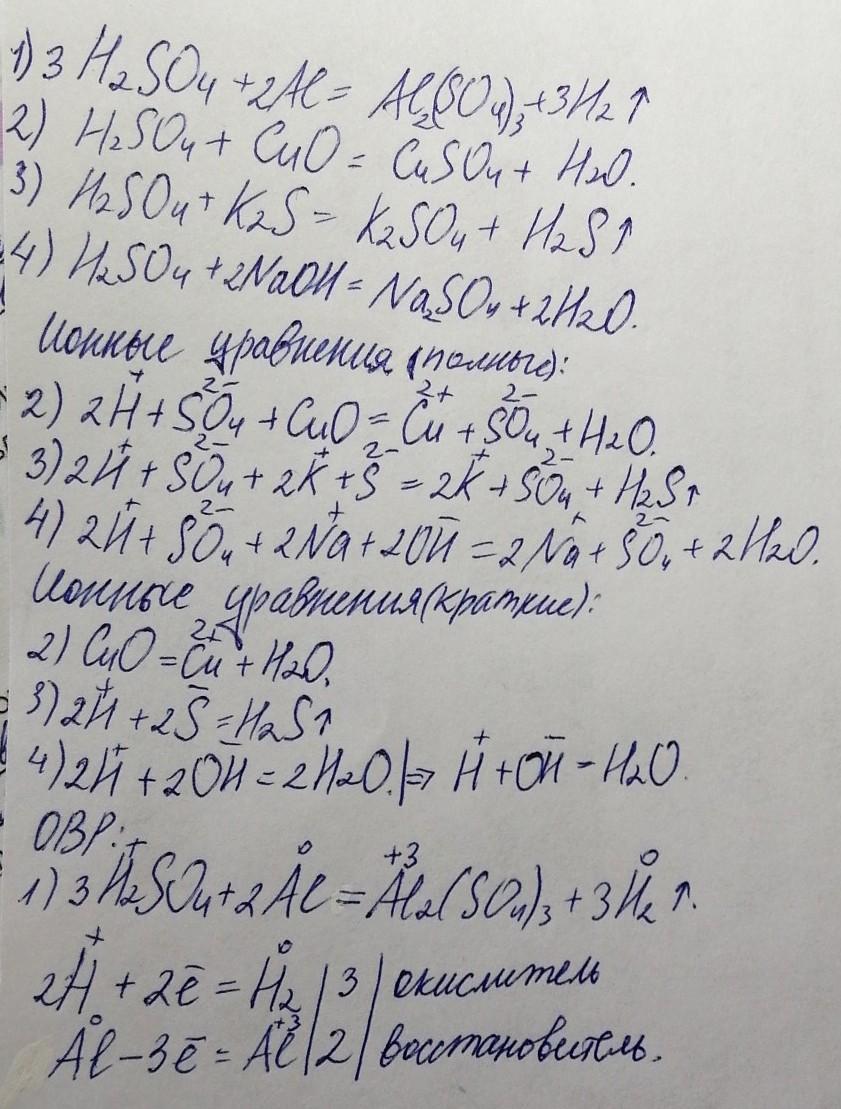 1) 3 H₂SO₄ + 2Al = Al₂(SO₄)₃ + 3H₂↑
2) H₂SO₄ + CuO = CuSO₄ + H₂O.
3) H₂SO₄ + K₂S = K₂SO₄ + H₂S↑
4) H₂SO₄ + 2NaOH = Na₂SO₄ + 2H₂O.
Ионные уравнения (полные):
2) 2H⁺ + SO₄²⁻ + CuO = Cu²⁺ + SO₄²⁻ + H₂O.
3) 2H⁺ + SO₄²⁻ + 2K⁺ + S²⁻ = 2K⁺ + SO₄²⁻ + H₂S↑
4) 2H⁺ + SO₄²⁻ + 2Na⁺ + 2OH⁻ = 2Na⁺ + SO₄²⁻ + 2H₂O.
Ионные уравнения (краткие):
2) CuO = Cu²⁺ + H₂O.
3) 2H⁺ + 2S⁻ = H₂S↑
4) 2H⁺ + 2OH⁻ = 2H₂O. |⇒ H⁺ + OH⁻ = H₂O.
ОВР:
1) 3H⁺₂SO₄ + 2Al⁰ = Al⁺³₂(SO₄)₃ + 3H⁰₂↑.
2H⁺ + 2ē = H⁰₂ | 3 | окислитель
Al⁰ - 3ē = Al⁺³ | 2 | восстановитель.